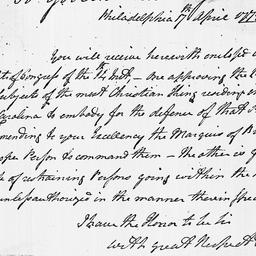 Philadelphia 17th April 177
You will receive herewith enclosed
of Congress of the 14 Inst, - One approving the
subjects of the most Christian King residing in
Carolina to embody for the defence of that
mending to your Excellency the Marquis of
Person to command them - the other is
of restraining Persons going within the
unless authorized in the manner therein
I have the Honor to be
with great Respect